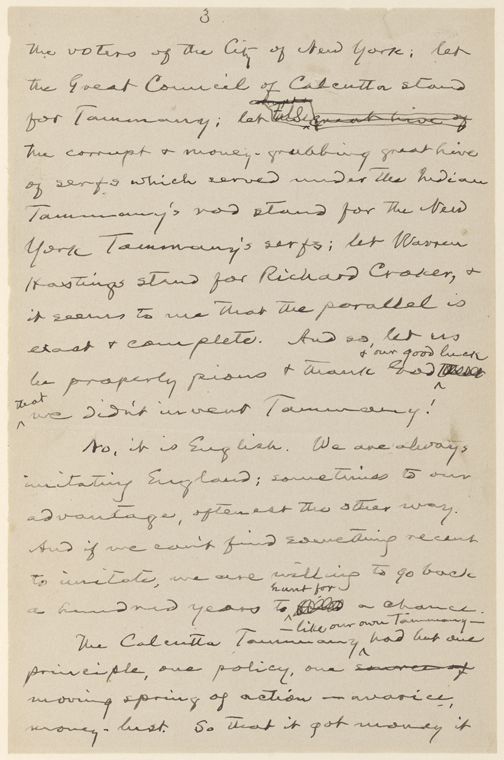 3
the voters of the City of New York; let
the Great Council of Calcutta stand
for Tammany; let this great hive of
the corrupt & money-grubbing great hive
of serfs which served under the Indian
Tammany's rod stand for the New
York Tammany's serfs; let Warren
Hastings stand for Richard Croker, &
it seems to me that the parallel is
exact & complete. And so, let us
& our good luck
be properly pious & thank God
that
we didn't invent Tammany!
No, it is English. We are always
imitating England; sometimes to our
advantage, oftenest the other way.
And if we can't find something recent
to imitate, we are willing to go back
hunt for
a hundred years to a chance.
—like our own Tammany—
The Calcutta Tammany had but one
principle, one policy, one source of
moving spring of action — avarice,
money-lust. So that it got money it